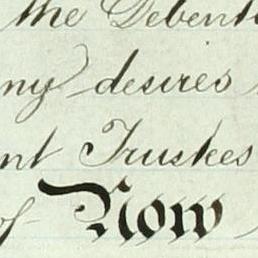 the Debent
ny desires
nt Trustees
of Now